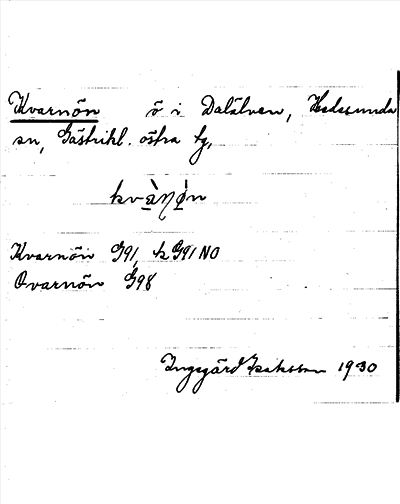 Kvarnön ö i Dalälven, Hedesunda
sn, Gästrikl. östra tg,
Kvarnön G91, k G91 NO
Qvarnön G98
Ingegärd Isaksson 1930